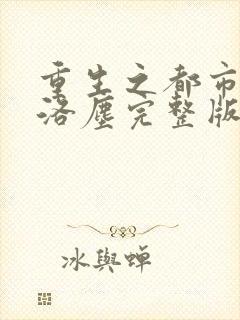 重生之都市
洛塵完整版
冰與蟬